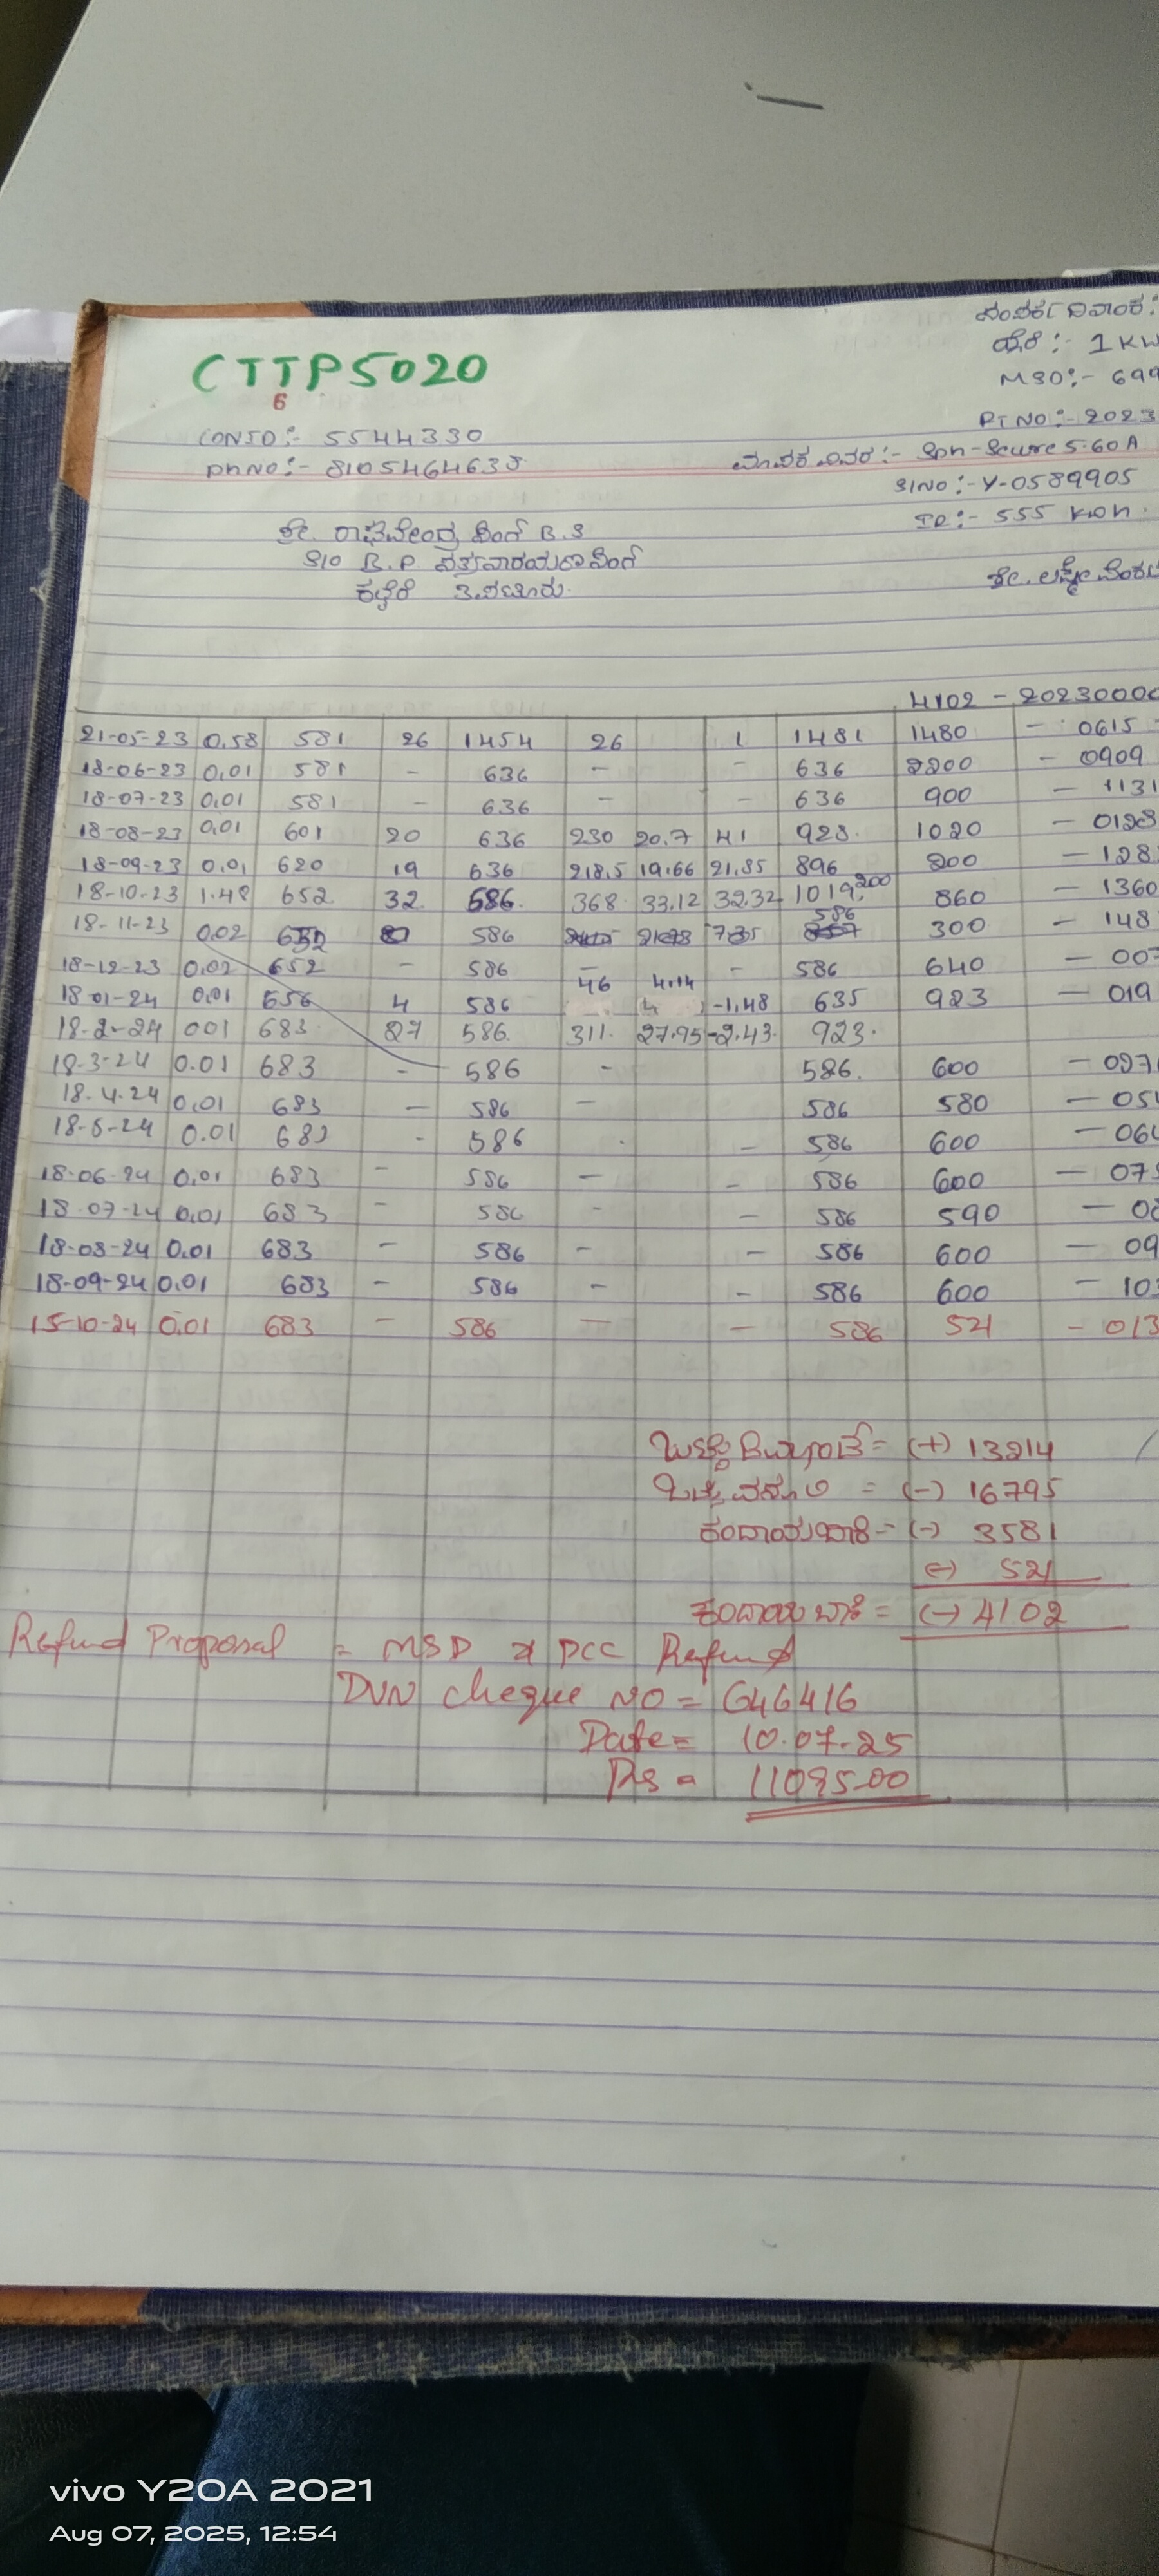 1 KW
CTTP5020
6
CONID:- 5544330
PhNO:- 8105464638
PTNO:- 2023
S/NO:-Y-0589905
IR:- 555 KWh.
ಶ್ರೀ. ರಾಘವೇಂದ್ರ ಸಿಂಗ್ B.S
S/O B.P ಸತ್ಯನಾರಾಯಣ ಸಿಂಗ್
4102 - 20230000
21-05-23 0.58 581 26 1454 26 1 1481 1480 - 0615
18-06-23 0.01 581 - 636 - - 636 2200 - 0909
18-07-23 0.01 581 - 636 - - 636 900 - 1131
18-08-23 0.01 601 20 636 230 20.7 41 928. 1020 - 0128
18-09-23 0.01 620 19 636 218.5 19.66 21.85 896 800 - 128
18-10-23 1.48 652 32. 586. 368 33.12 32.32 1019, 200 860 - 1360
18-11-23 0.02 652 586 586 300 - 148
18-12-23 0.02 652 - 586 - - 586 640 - 007
18-01-24 0.01 656 4 586 46 4.14 -1.48 635 923 - 019
18-2-24 001 683 27 586. 311. 27.95 -2.43. 923.
18-3-24 0.01 683 - 586 - 586. 600 - 027
18.4.24 0.01 683 - 586 - 586 580 - 05
18-5-24 0.01 683 - 586 - 586 600 - 06
18-06-24 0.01 683 - 586 - - 586 600 - 07
18-07-24 0.01 683 - 586 - - 586 590 - 0
18-08-24 0.01 683 - 586 - - 586 600 - 09
18-09-24 0.01 683 - 586 - - 586 600 - 10
15-10-24 0.01 683 - 586 - - 586 521 - 013
= (+) 13214
= (-) 16795
= (-) 3581
(-) 521
ಕಂದಾಯ ಬಾಕಿ = (-) 4102
Refund Proposal = MSD & DCC Refund
DVN Cheque NO = 646416
Date = 10.07.25
Rs = 11095-00
vivo Y20A 2021
Aug 07, 2025, 12:54